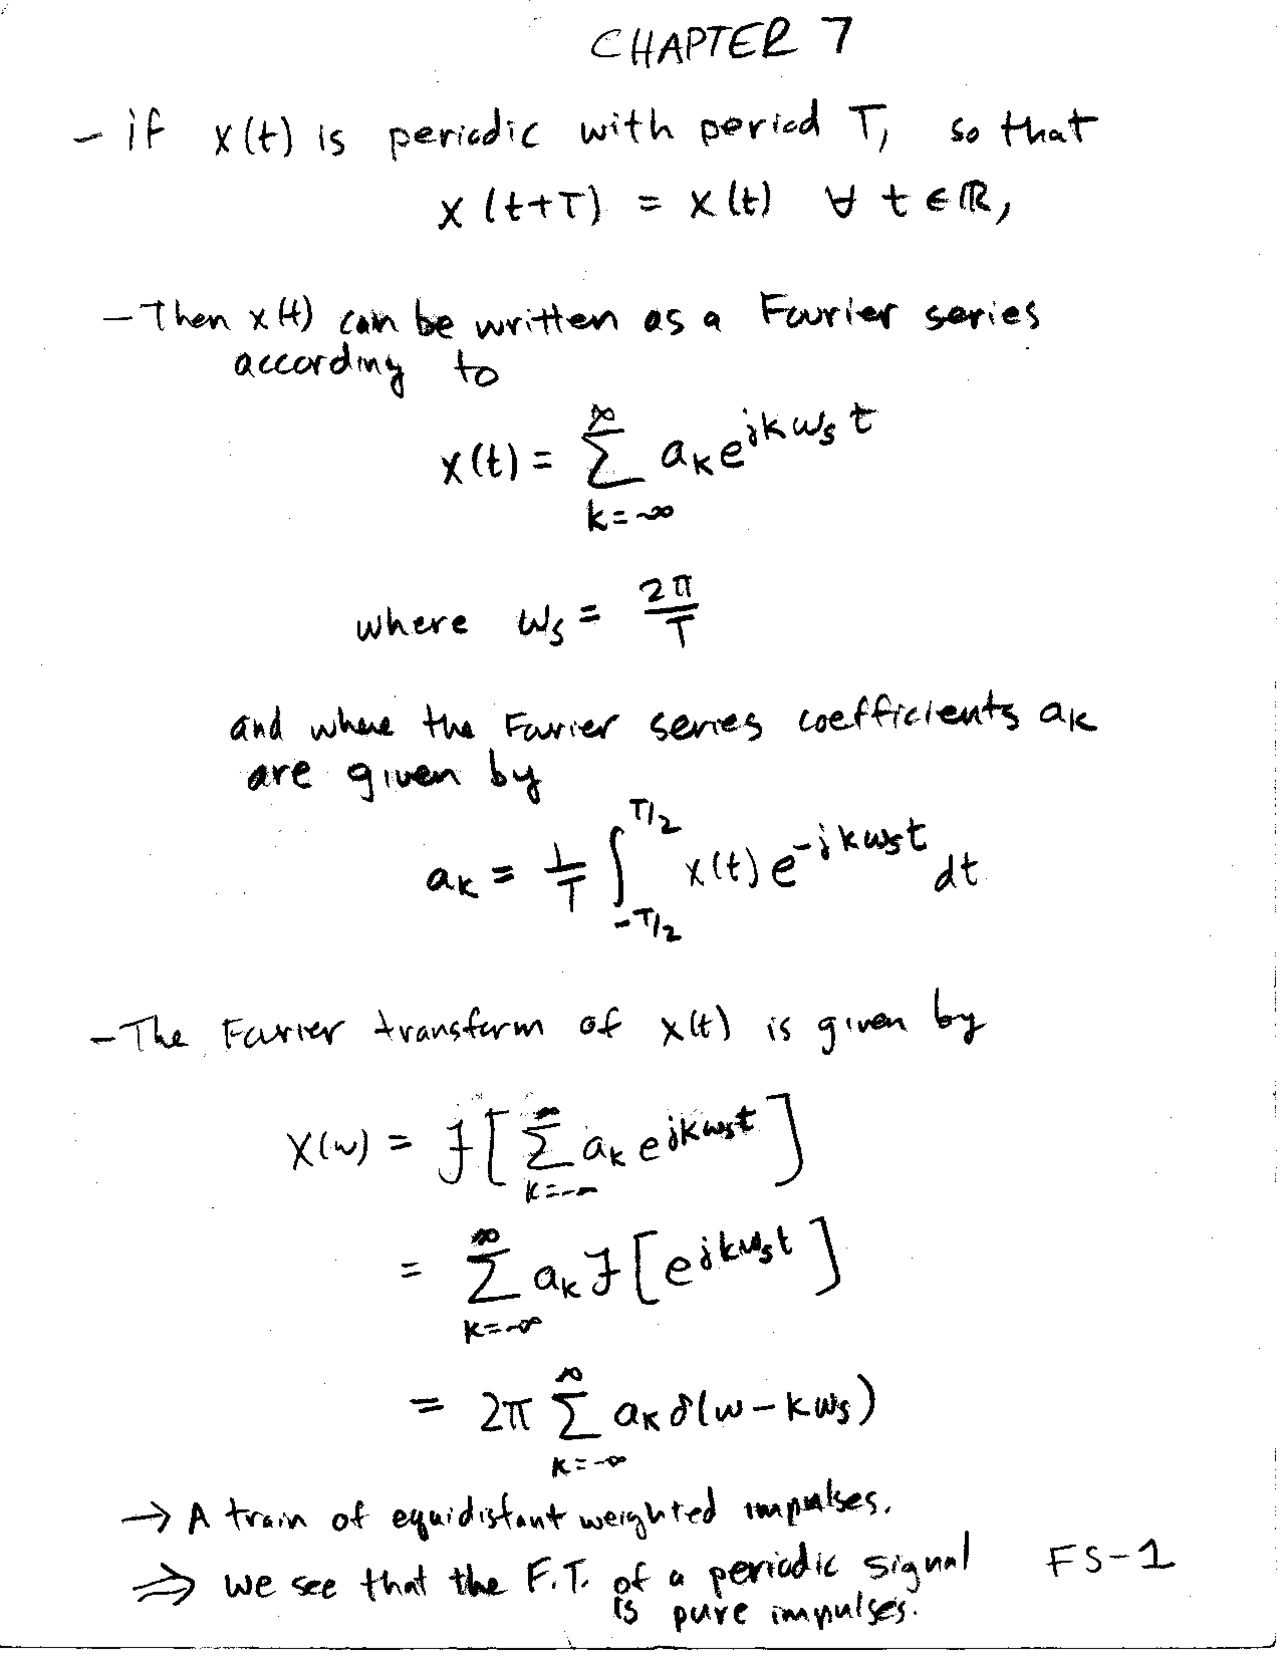 CHAPTER 7
- if x(t) is periodic with period T, so that
x(t+T) = x(t) ∀ t ∈ ℝ,
- Then x(t) can be written as a Fourier series
according to
x(t) = ∑_{k=-∞}^{∞} a_k e^{jkω_s t}
where ω_s = 2π/T
and where the Fourier series coefficients a_k
are given by
a_k = 1/T ∫_{-T/2}^{T/2} x(t) e^{-jkω_s t} dt
- The Fourier transform of x(t) is given by
X(ω) = ℱ[∑_{k=-∞}^{∞} a_k e^{jkω_s t}]
= ∑_{k=-∞}^{∞} a_k ℱ[e^{jkω_s t}]
= 2π ∑_{k=-∞}^{∞} a_k δ(ω - kω_s)
→ A train of equidistant weighted impulses.
⇒ we see that the F.T. of a periodic signal
is pure impulses.
FS-1